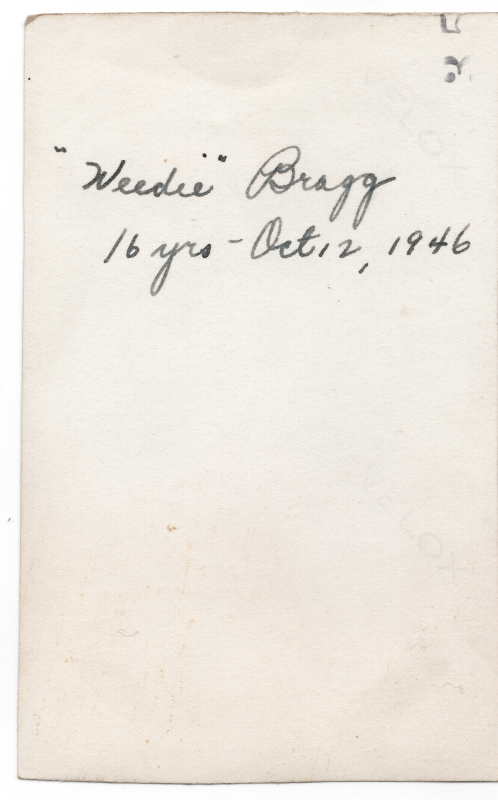 "Weedie" Bragg
16 yrs - Oct 12, 1946
VELOX
VELOX